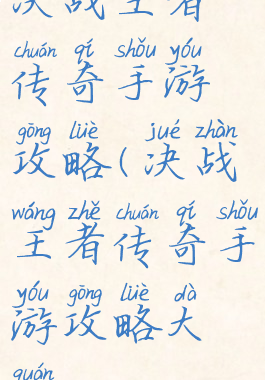 决战王者
chuán qí shǒu yóu
传奇手游
gōng lüè jué zhàn
攻略(决战
wáng zhě chuán qí shǒu
王者传奇手
yóu gōng lüè dà
游攻略大
quán